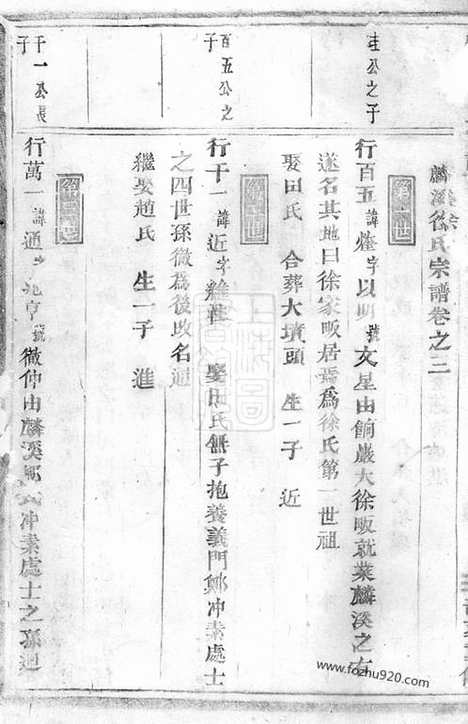 麟溪徐氏宗譜卷之二
圭公之子
行百五諱燧字以明號文星由餉巖大徐畈就業麟溪之右
遂名其地曰徐家畈居焉為徐氏第一世祖
娶田氏 合葬大墳頭 生一子 近
百五公之子
行千一諱近字 娶田氏無子抱養義門鄭冲素處士
之四世孫徽為後改名通
繼娶趙氏 生一子 進
千一公長子
行萬一諱通字 亨號徽仲由麟溪鄭 冲素處士之孫過
www.fozhu920.com